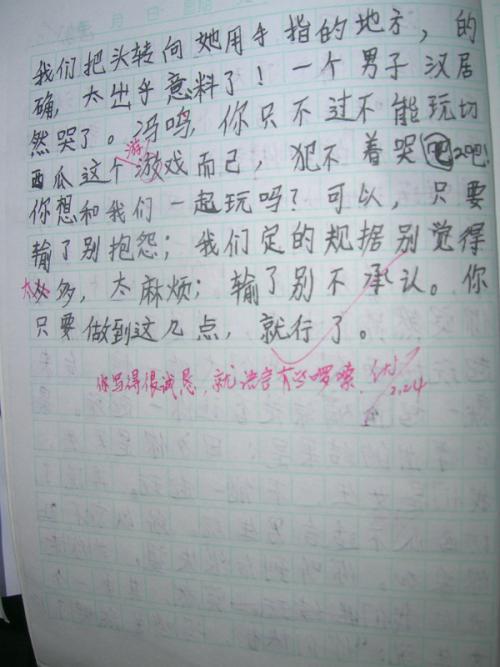 我们把头转向她用手指的地方，的
确，太出乎意料了！一个男子汉居
然哭了。冯鸣，你只不过不能玩切
西瓜这个游戏而已，犯不着哭吧
游
你想和我们一起玩吗？可以，只要
输了别抱怨；我们定的规据别觉得
太多，太麻烦；输了别不承认。你
只要做到这几点，就行了。
你写得很诚恳，就语言有些啰嗦。
2.24